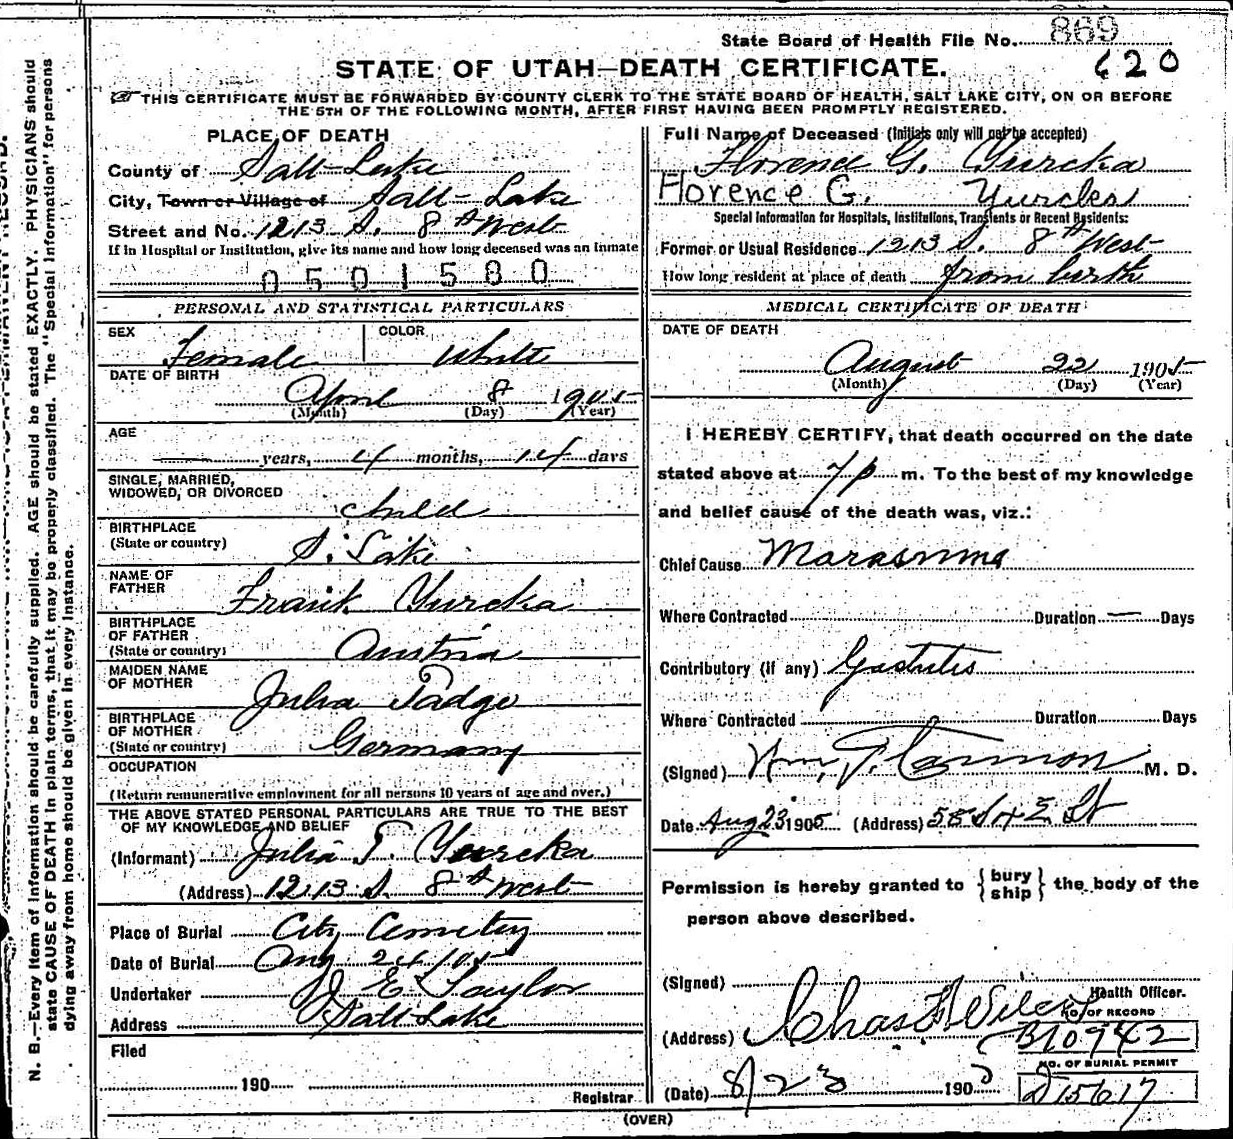 State Board of Health File No. 869
620
STATE OF UTAH—DEATH CERTIFICATE.
THIS CERTIFICATE MUST BE FORWARDED BY COUNTY CLERK TO THE STATE BOARD OF HEALTH, SALT LAKE CITY, ON OR BEFORE
THE 5TH OF THE FOLLOWING MONTH, AFTER FIRST HAVING BEEN PROMPTLY REGISTERED.
PLACE OF DEATH
County of Salt Lake
City, Town or Village of Salt Lake
Street and No. 1213 S. 8th West
If in Hospital or Institution, give its name and how long deceased was an inmate
0501580
PERSONAL AND STATISTICAL PARTICULARS
SEX Female COLOR White
DATE OF BIRTH
April 8 1905
(Month) (Day) (Year)
AGE
— years, 4 months, 14 days
SINGLE, MARRIED,
WIDOWED, OR DIVORCED child
BIRTHPLACE
(State or country) S. Lake
NAME OF
FATHER Frank Yurcka
BIRTHPLACE
OF FATHER
(State or country) Austria
MAIDEN NAME
OF MOTHER Julia Padge
BIRTHPLACE
OF MOTHER
(State or country) Germany
OCCUPATION
(Return remunerative employment for all persons 10 years of age and over.)
THE ABOVE STATED PERSONAL PARTICULARS ARE TRUE TO THE BEST
OF MY KNOWLEDGE AND BELIEF
(Informant) Julia T. Yurcka
(Address) 1213 S. 8th West
Place of Burial City Cemetry
Date of Burial Aug 24/05
Undertaker J E Taylor
Address Salt Lake
Filed
190
Registrar
(OVER)
Full Name of Deceased (Initials only will not be accepted)
Florence G. Yurcka
Florence G. Yurcles
Special Information for Hospitals, Institutions, Transients or Recent Residents:
Former or Usual Residence 1213 S. 8th West
How long resident at place of death from birth
MEDICAL CERTIFICATE OF DEATH
DATE OF DEATH
August 22 1905
(Month) (Day) (Year)
I HEREBY CERTIFY, that death occurred on the date
stated above at 7 p m. To the best of my knowledge
and belief cause of the death was, viz.:
Chief Cause Marasmus
Where Contracted Duration — Days
Contributory (if any) Gastritis
Where Contracted Duration Days
(Signed) Wm. T. Cannon M. D.
Date Aug 23 1905 (Address) 58 S 4 E St
Permission is hereby granted to {bury ship} the body of the
person above described.
(Signed)
Chas F Wilcox Health Officer.
(Address)
NO. OF RECORD
B10942
NO. OF BURIAL PERMIT
D15617
(Date) 8/23 1905
N. B.—Every item of information should be carefully supplied. AGE should be stated EXACTLY. PHYSICIANS should
state CAUSE OF DEATH in plain terms, that it may be properly classified. The "Special Information" for persons
dying away from home should be given in every instance.